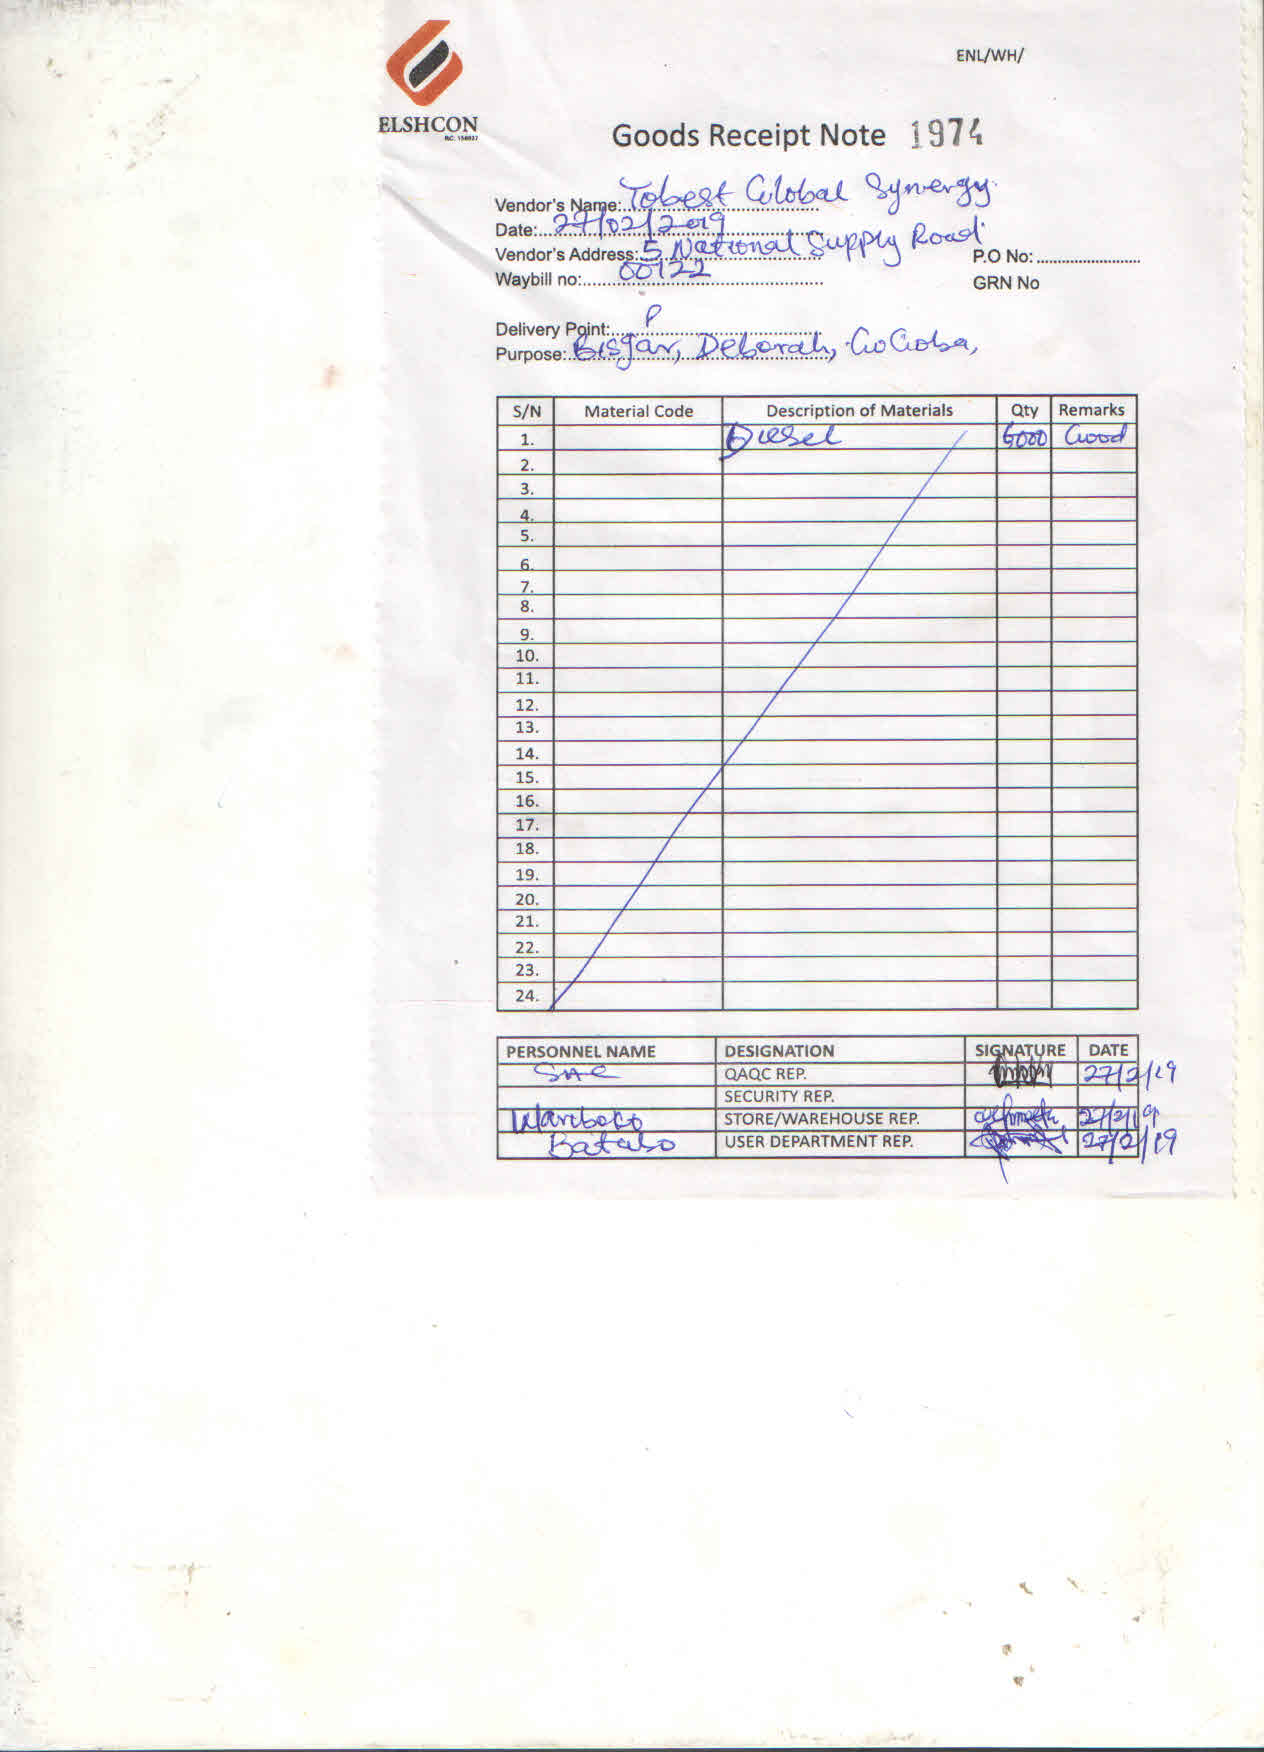 ELSHCON
RC. 156027
ENL/WH/
Goods Receipt Note 1974
Vendor's Name: Tobest Global Synergy
Date: 27/02/2019
Vendor's Address: 5 National Supply Road
P.O No:
Waybill no: 00122
GRN No
Delivery Point: P
Purpose: Bisgar, Deborah, GoGoba,
S/N Material Code Description of Materials Qty Remarks
1. Diesel 6000 Good
2.
3.
4.
5.
6.
7.
8.
9.
10.
11.
12.
13.
14.
15.
16.
17.
18.
19.
20.
21.
22.
23.
24.
PERSONNEL NAME DESIGNATION SIGNATURE DATE
QAQC REP. 27/2/19
SECURITY REP.
Wariboko STORE/WAREHOUSE REP. 27/2/19
Batubo USER DEPARTMENT REP. 27/2/19